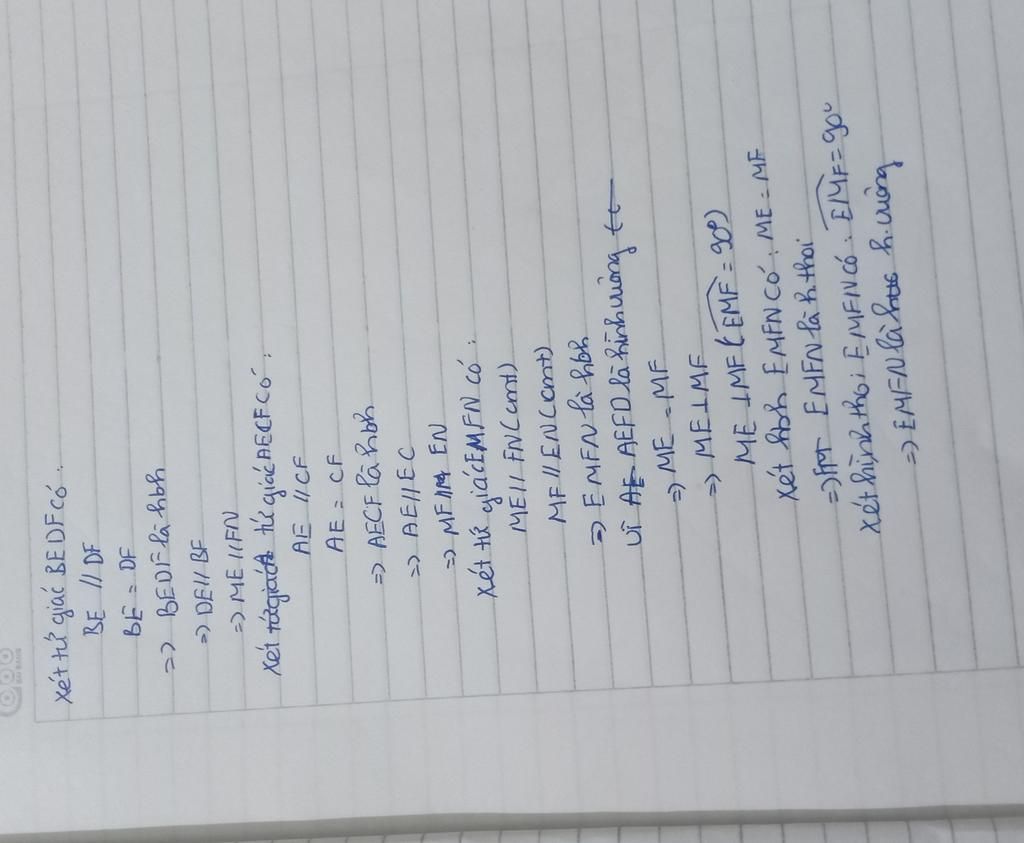 Xét tứ giác BEDF có:
BE // DF
BE = DF
=> BEDF là hbh
=> DE // BF
=> ME // FN
Xét tứ giác AECF có:
AE // CF
AE = CF
=> AECF là hbh
=> AE // EC
=> MF // EN
Xét tứ giác EMFN có:
ME // FN (cmt)
MF // EN (cmt)
=> EMFN là hbh
Vì AEFD là hình vuông
=> ME = MF
=> ME ⊥ MF
ME ⊥ MF (EMF = 90°)
Xét hbh EMFN có: ME = MF
=> EMFN là h.thoi
Xét hình thoi EMFN có: EMF = 90°
=> EMFN là h.vuông